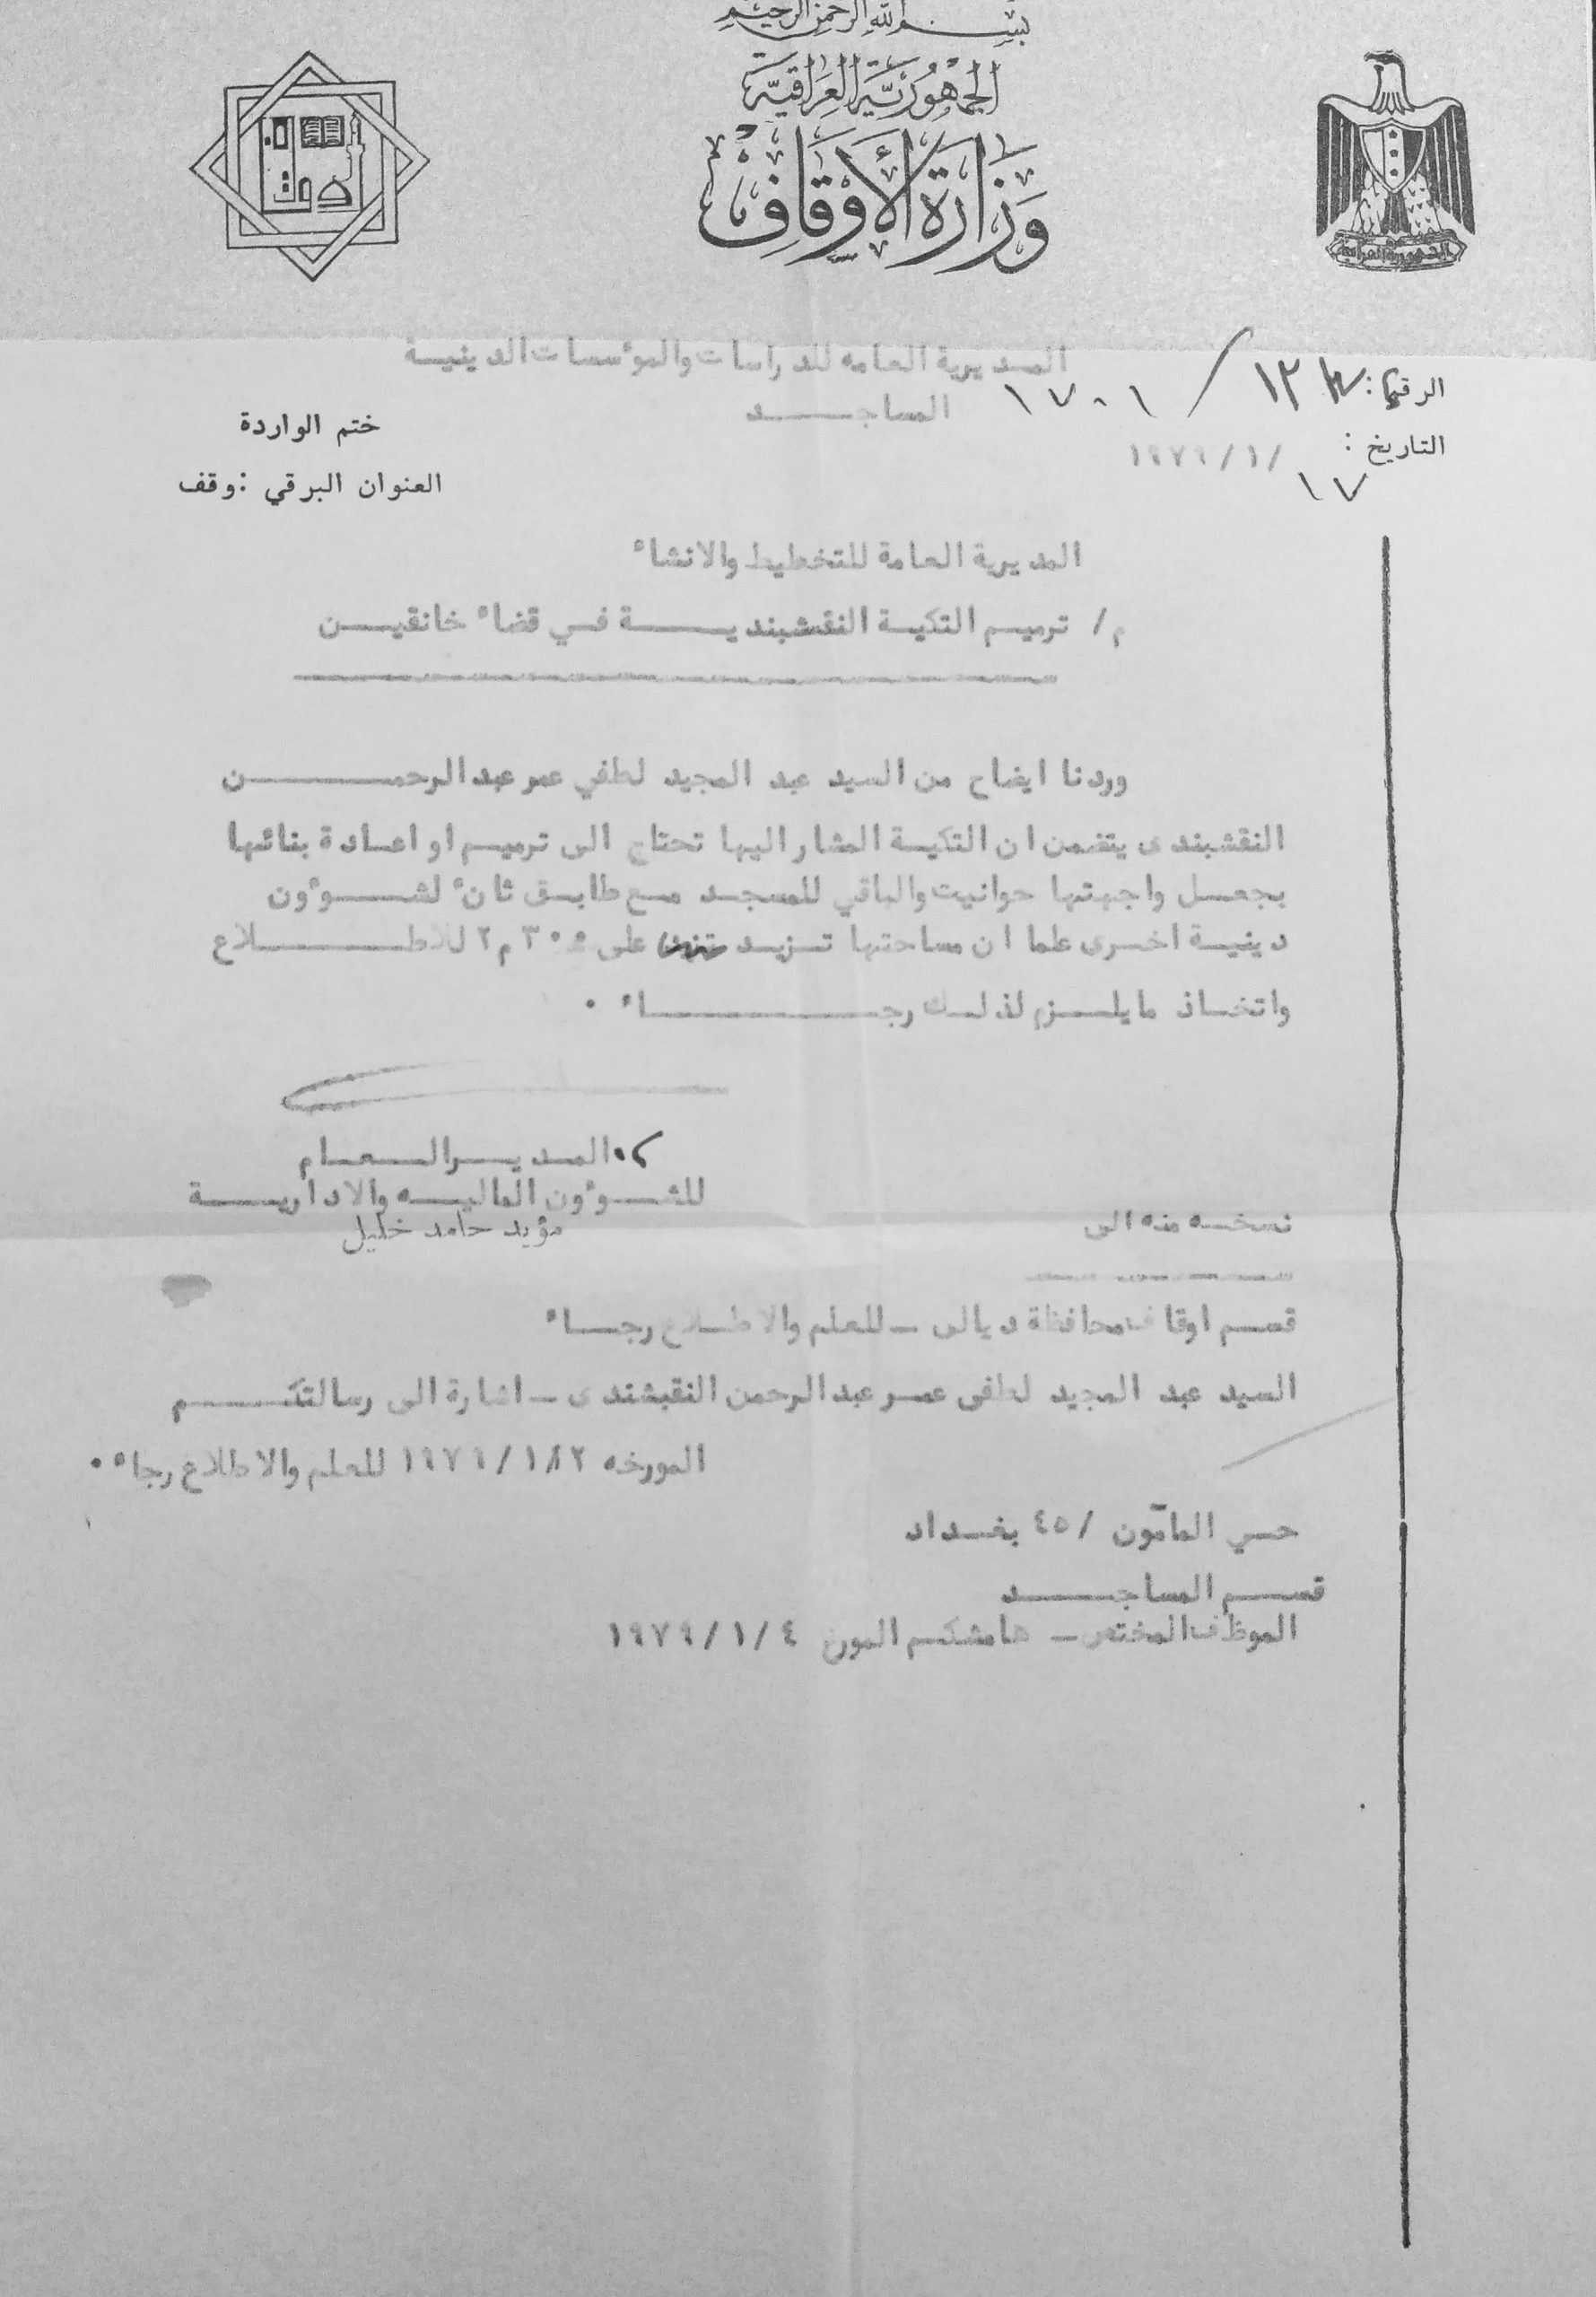 بسم الله الرحمن الرحيم
الجمهورية العراقية
وزارة الأوقاف
اوقاف
الجمهورية العراقية
المديرية العامه للدراسات والمؤسسات الدينية
المساجد
الرقم: ١٧٠١/
التاريخ: ١٧/١/١٩٧٩
ختم الواردة
العنوان البرقي : وقف
المديرية العامة للتخطيط والانشاء
م/ ترميم التكية النقشبندية في قضاء خانقين
وردنا ايضاح من السيد عبد المجيد لطفي عمر عبد الرحمن
النقشبندى يتضمن ان التكية المشار اليها تحتاج الى ترميم او اعادة بنائها
بجعل واجهتها حوانيت والباقي للمسجد مع طابق ثانٍ لشوؤن
دينية اخرى علما ان مساحتها تزيد على م٢ للاطلاع
واتخاذ مايلزم لذلك رجاء ٠
المدير العام
للشوؤن الماليه والادارية
مؤيد حامد خليل
نسخه منه الى
قسم اوقاف محافظة ديالى – للعلم والاطلاع رجاء
السيد عبد المجيد لطفى عمر عبد الرحمن النقبشندى – اشارة الى رسالتكم
المورخه ١٩٧٩/١ للعلم والاطلاع رجاء ٠
حي المامون /٤٥ بغداد
قسم المساجد
الموظف المختص – هامشكم المورخ ٤/١/١٩٧٩